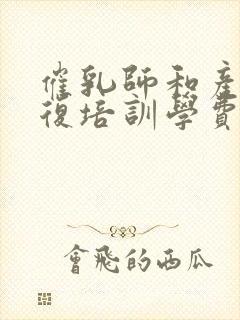 催乳師和產
復培訓學費
會飛的西瓜